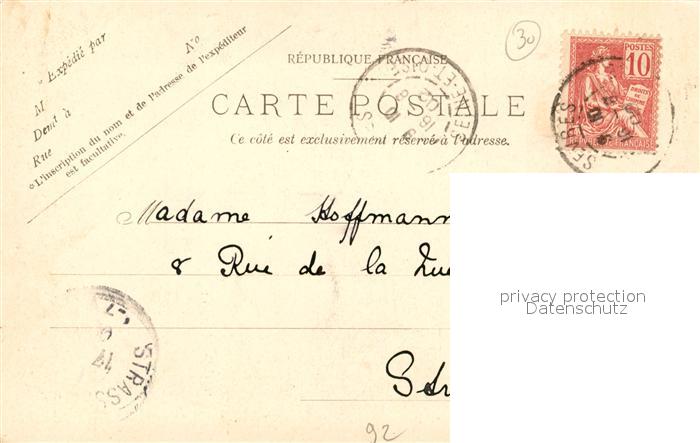 30
RÉPUBLIQUE FRANÇAISE
CARTE POSTALE
Ce côté est exclusivement réservé à l'adresse.
Expédié par
No
M
Demt à
Rue
L'inscription du nom et de l'adresse de l'expéditeur
est facultative.
POSTES
10
SEINE-ET-OISE
SEVRES
Madame Hoffmann
8 Rue de la
privacy protection
Datenschutz
STRASS
17
92